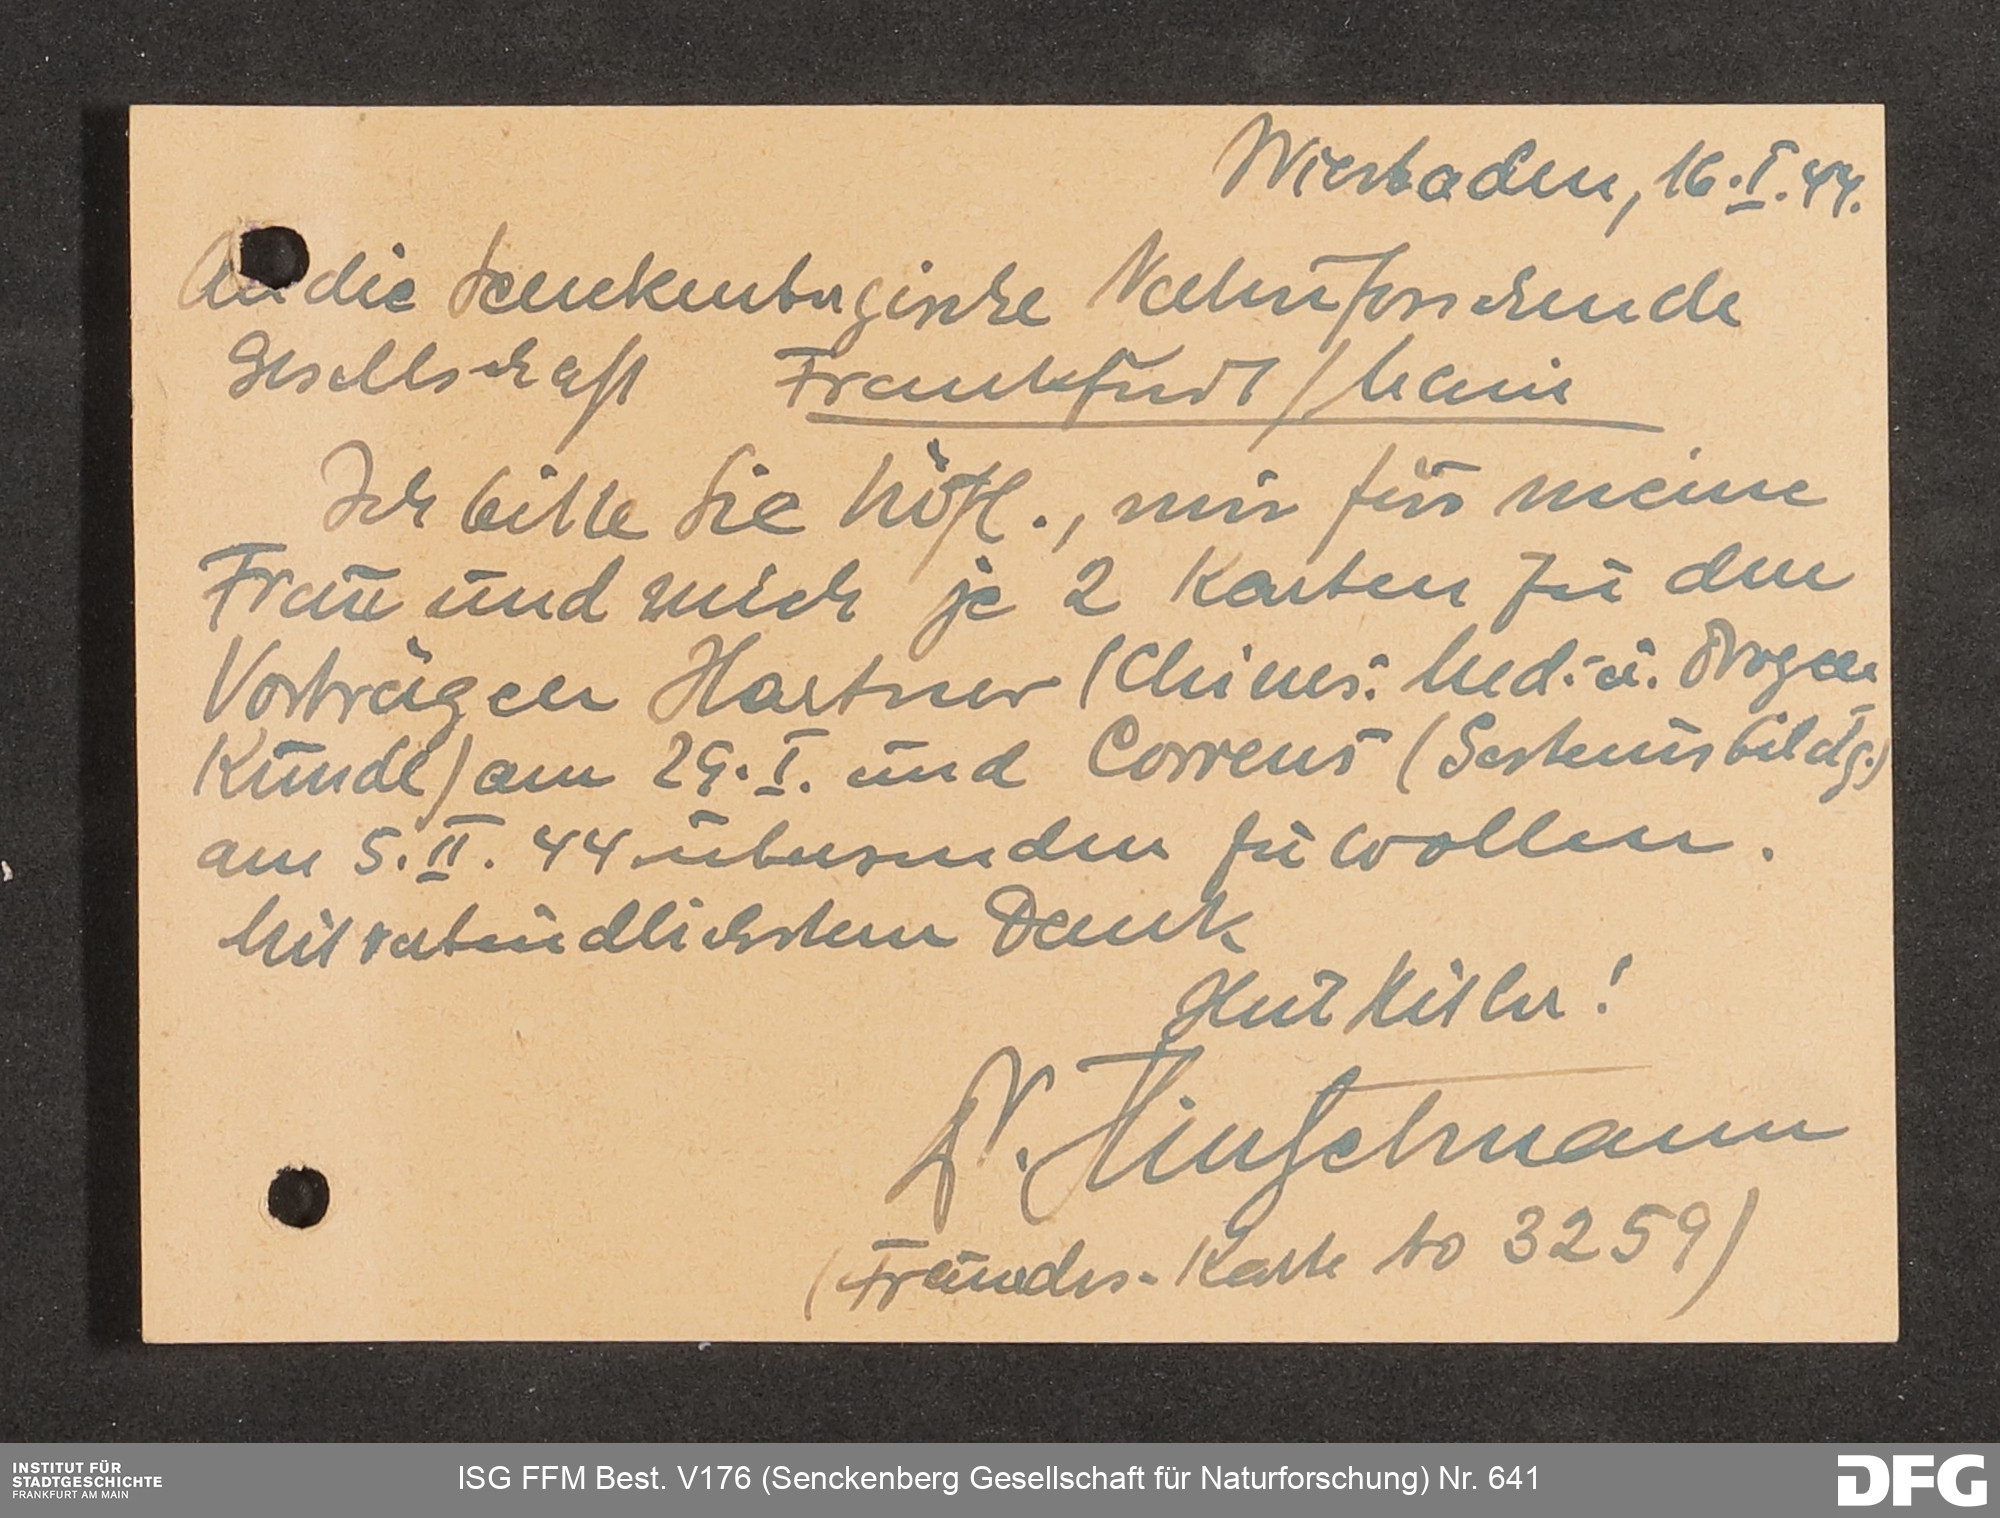 Wiesbaden, 16.I.44.
An die Senckenbergische Naturforschende
Gesellschaft Frankfurt/Main
Ich bitte Sie höfl., mir für meine
Frau und mich je 2 Karten zu den
Vorträgen Hartner (Chines. Med. u. Drogen
Kunde) am 29.I. und Correns (Gesteinsbildg.)
am 5.II.44 übersenden zu wollen.
Mit verbindlichstem Dank
Heil Hitler!
Dr. Hintzelmann
(Freundes-Karte No 3259)
INSTITUT FÜR
STADTGESCHICHTE
FRANKFURT AM MAIN
ISG FFM Best. V176 (Senckenberg Gesellschaft für Naturforschung) Nr. 641
DFG